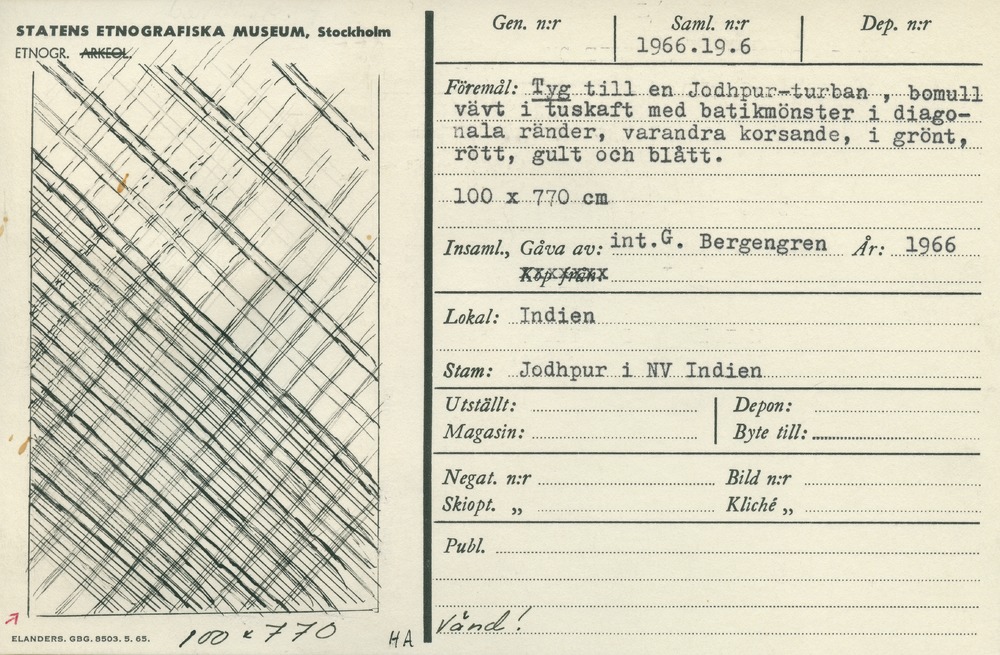 STATENS ETNOGRAFISKA MUSEUM, Stockholm
ETNOGR. ARKEOL.
Gen. n:r Saml. n:r Dep. n:r
1966.19.6
Föremål: Tyg till en Jodhpur-turban , bomull
vävt i tuskaft med batikmönster i diago-
nala ränder, varandra korsande, i grönt,
rött, gult och blått.
100 x 770 cm
Insaml., Gåva av: int.G. Bergengren År: 1966
Köp från
Lokal: Indien
Stam: Jodhpur i NV Indien
Utställt: Depon:
Magasin: Byte till:
Negat. n:r Bild n:r
Skiopt. „ Kliché „
Publ.
Vänd!
ELANDERS. GBG. 8503. 5. 65.
100 x 770
HA